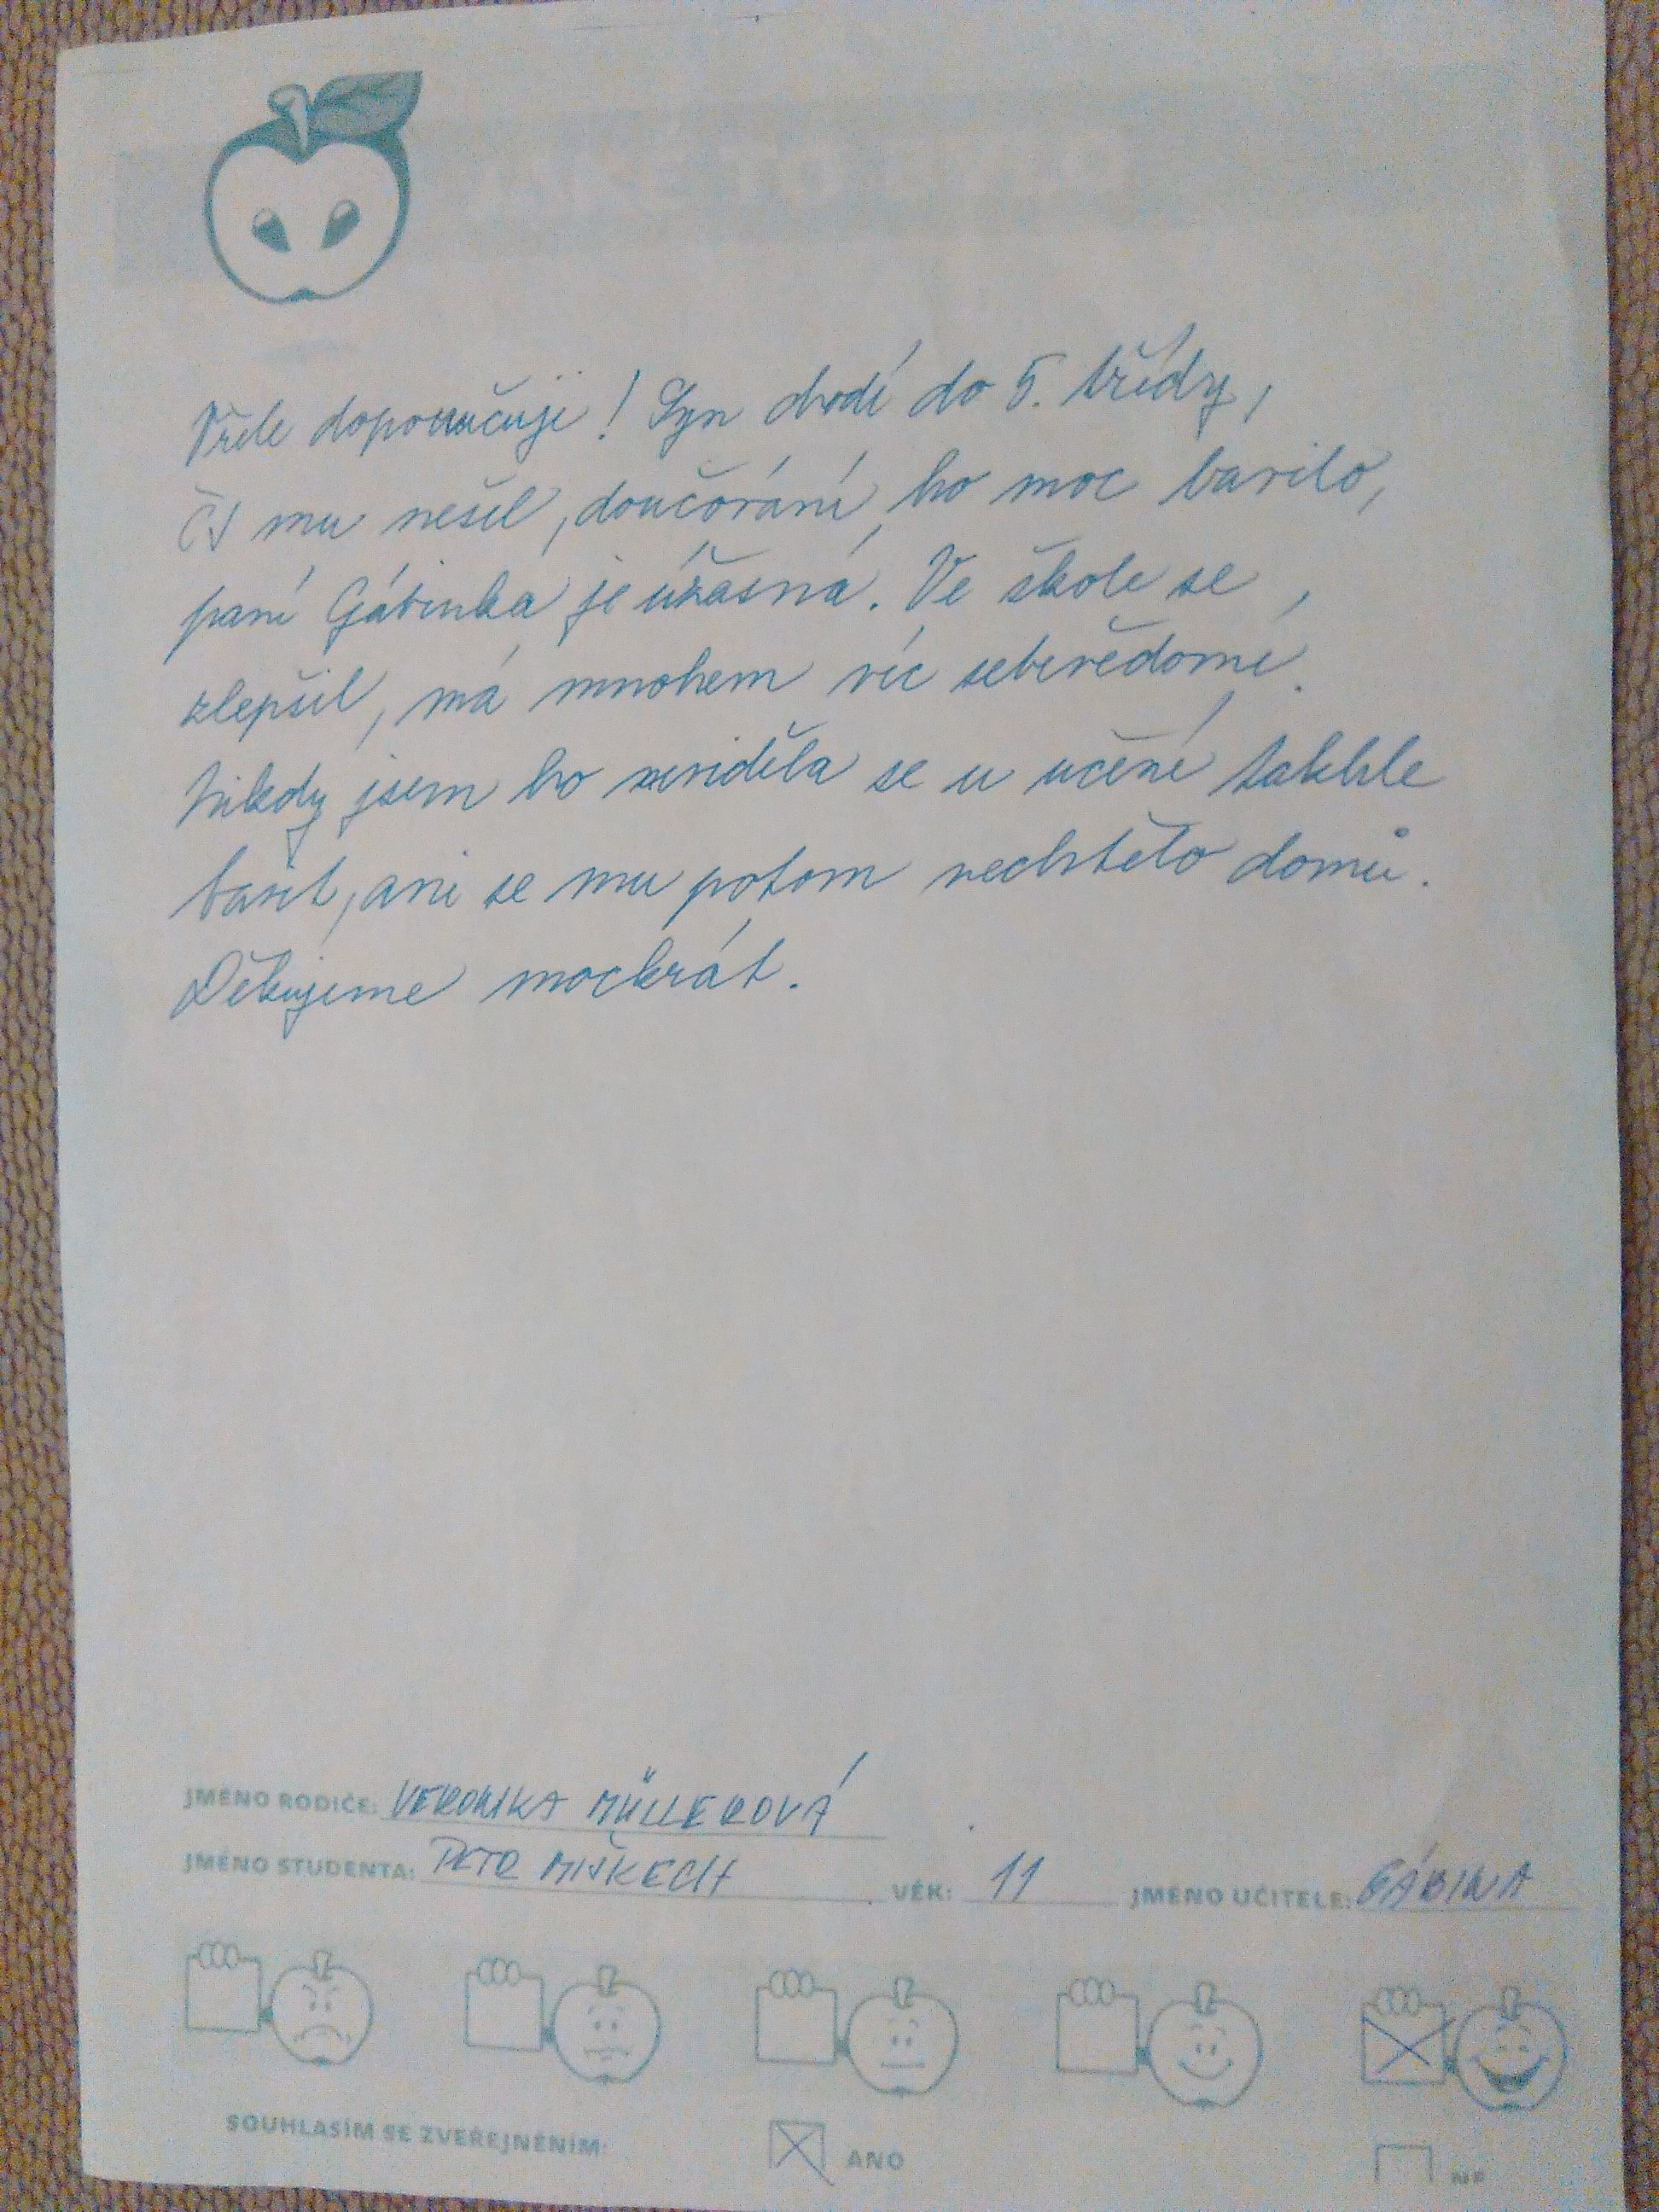 Vřele doporučuji! Syn chodí do 5. třídy,
ČJ mu nešel, doučování ho moc bavilo,
paní Gábinka je úžasná. Ve škole se
zlepšil, má mnohem víc sebevědomí.
Nikdy jsem ho neviděla se u učení takhle
bavit, ani se mu potom nechtělo domů.
Děkujeme mockrát.
JMÉNO RODIČE: VERONIKA MÜLLEROVÁ
JMÉNO STUDENTA: PETR MIŠKECH VĚK: 11 JMÉNO UČITELE: GÁBINA
SOUHLASÍM SE ZVEŘEJNĚNÍM: ANO NE